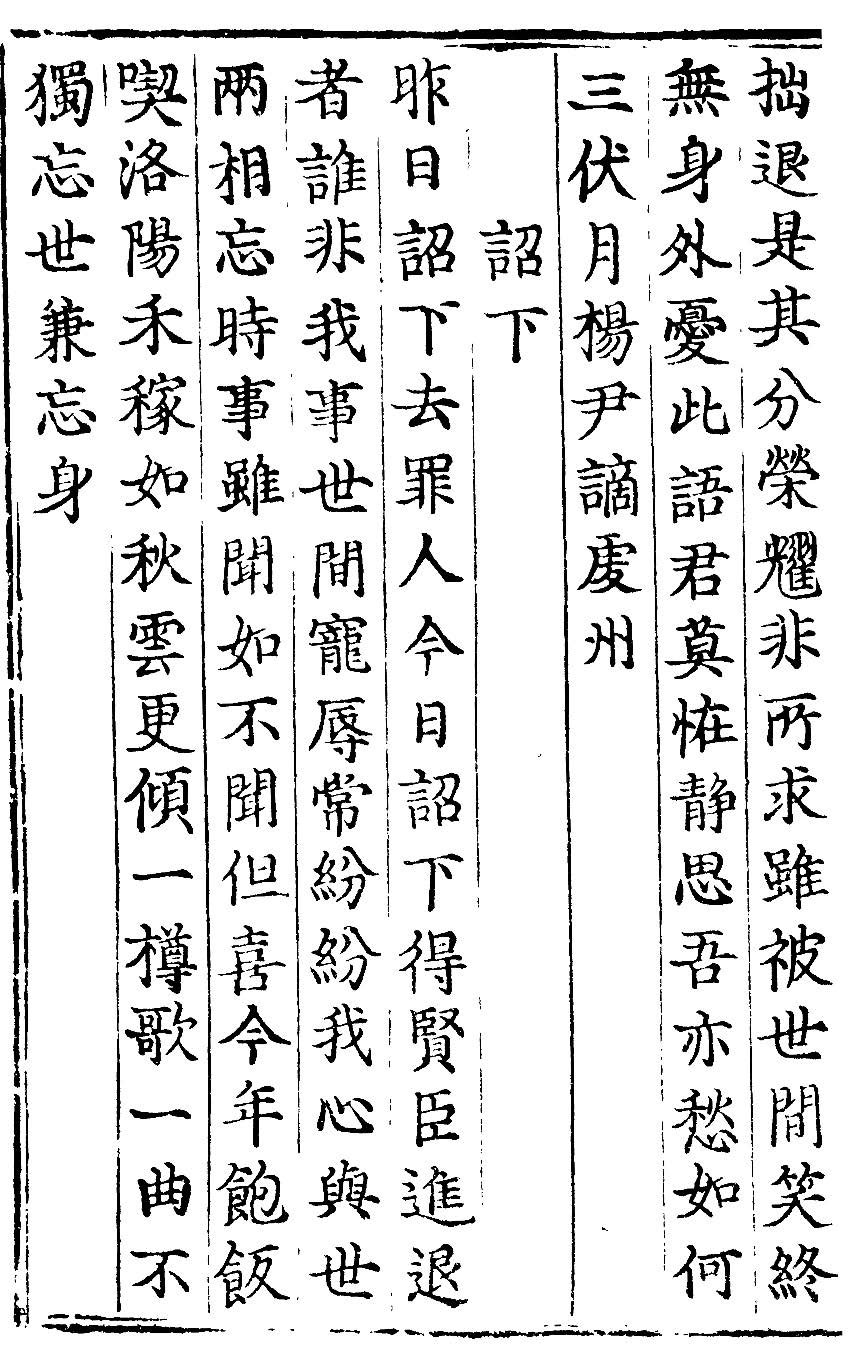 拙退是其分榮耀非所求雖被世間笑終
無身外憂此語君莫恠静思吾亦愁如何
三伏月楊尹謫虔州
詔下
昨日詔下去罪人今日詔下得賢臣進退
者誰非我事世間寵辱常紛紛我心與世
兩相忘時事雖聞如不聞但喜今年飽飯
喫洛陽禾稼如秋雲更傾一樽歌一曲不
獨忘世兼忘身